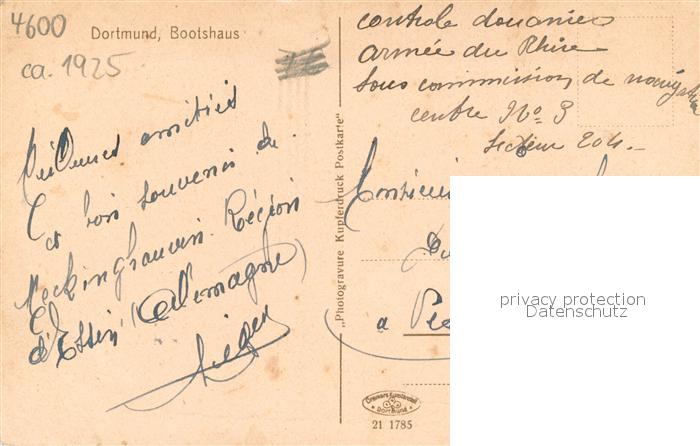 4600
Dortmund, Bootshaus
ca. 1925
Meilleures amitiés
Et bon souvenir de
Reckinghausen Région
d'Essen (Allemagne)
controle douanier
armée du Rhin
sous commission de
centre No 3
secteur 204.-
Monsieur
a
„Photogravure Kupferdruck Postkarte"
privacy protection
Datenschutz
21 1785